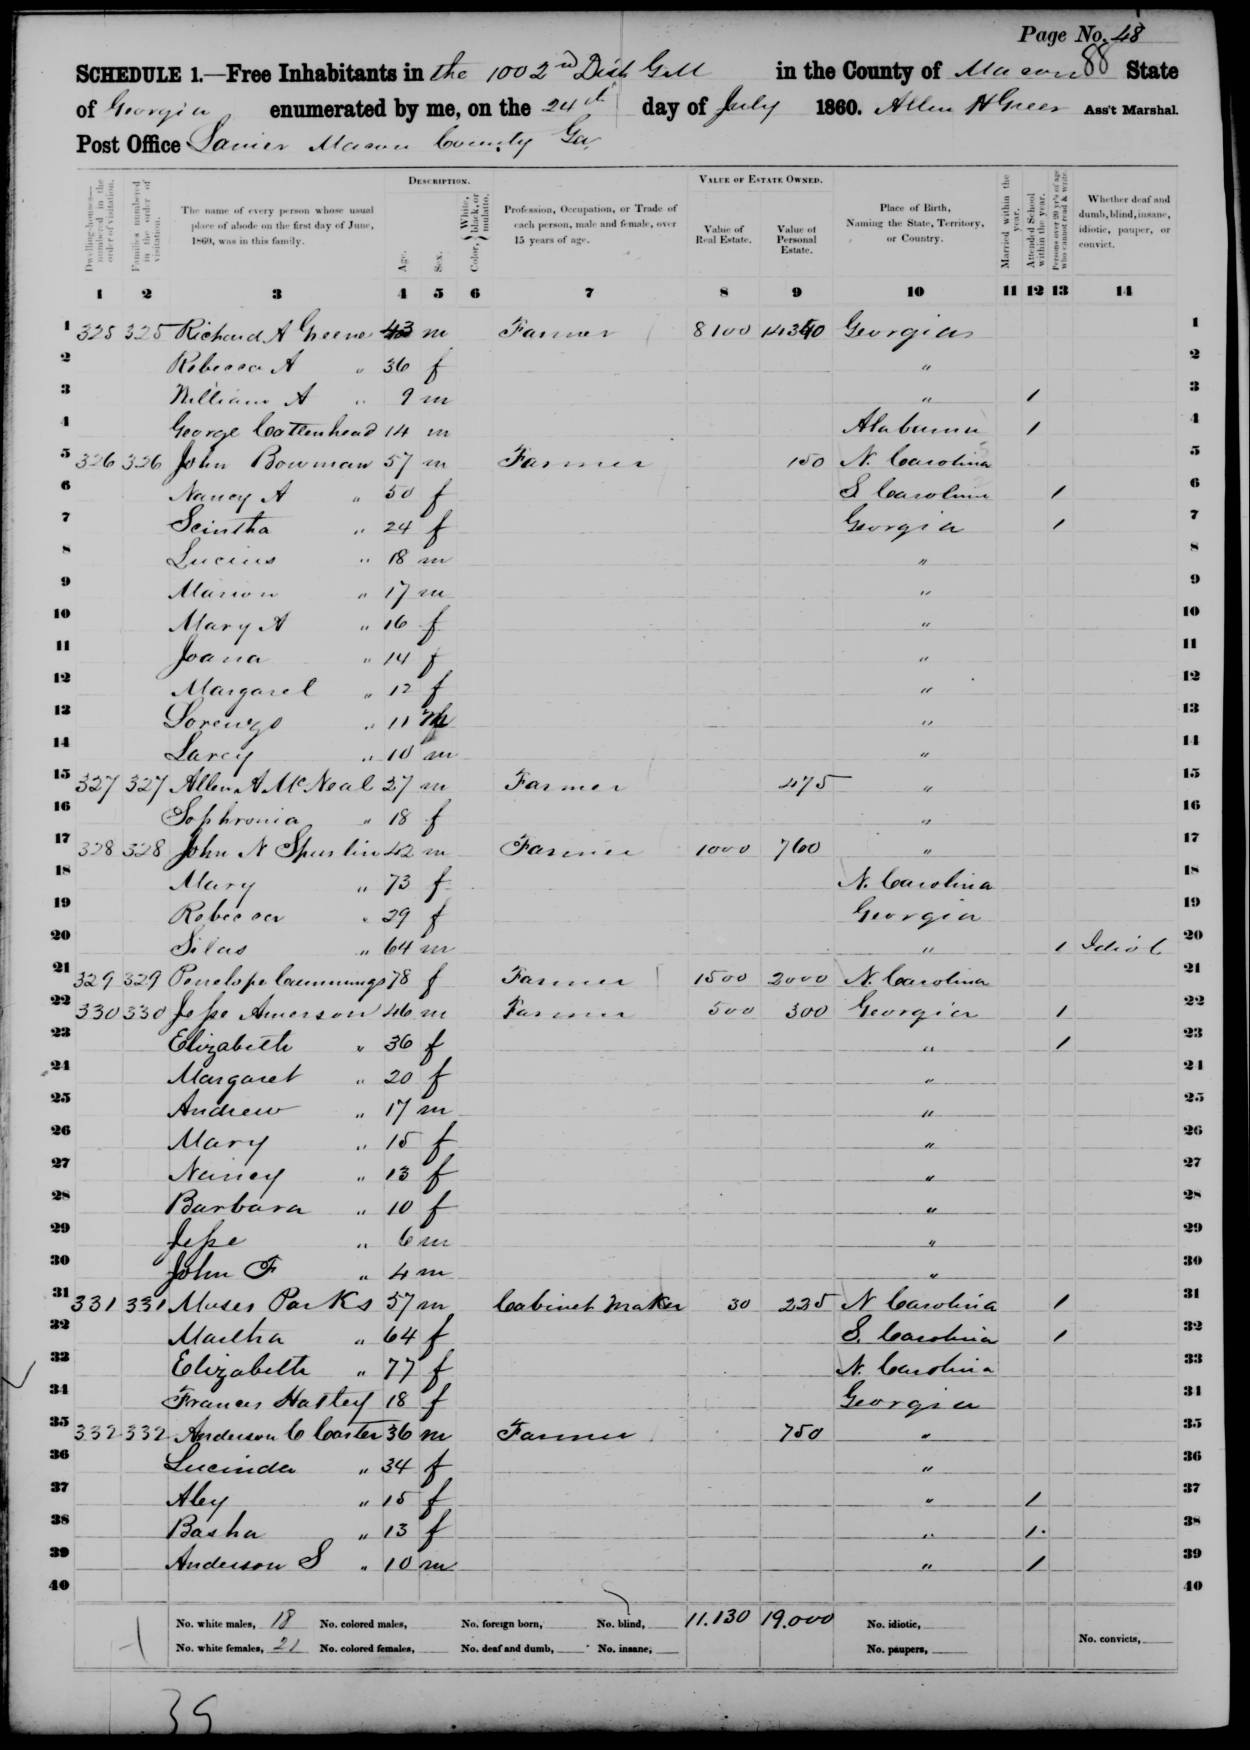 Page No. 48
88
SCHEDULE 1.—Free Inhabitants in the 1002nd Dist GM in the County of Macon State
of Georgia enumerated by me, on the 24th day of July 1860. Allen H Greer Ass't Marshal.
Post Office Lanier Macon County Ga.
Dwelling-houses—numbered in the order of visitation.
Families numbered in the order of visitation.
The name of every person whose usual place of abode on the first day of June, 1860, was in this family.
DESCRIPTION.
Age.
Sex.
Color, White, black, or mulatto.
Profession, Occupation, or Trade of each person, male and female, over 15 years of age.
VALUE OF ESTATE OWNED.
Value of Real Estate.
Value of Personal Estate.
Place of Birth, Naming the State, Territory, or Country.
Married within the year.
Attended School within the year.
Persons over 20 yr's of age who cannot read & write.
Whether deaf and dumb, blind, insane, idiotic, pauper, or convict.
1 2 3 4 5 6 7 8 9 10 11 12 13 14
1 325 325 Richard A Greene 43 m Farmer 8100 14340 Georgia 1
2 Rebecca A " 36 f " 2
3 William A " 9 m " 1 3
4 George Cottenhead 14 m Alabama 1 4
5 326 326 John Bowman 57 m Farmer 150 N. Carolina 5
6 Nancy A " 50 f S Carolina 1 6
7 Scintha " 24 f Georgia 1 7
8 Lucius " 18 m " 8
9 Marion " 17 m " 9
10 Mary A " 16 f " 10
11 Joana " 14 f " 11
12 Margaret " 12 f " 12
13 " 11 " 13
14 Larcy " 10 m " 14
15 327 327 Allen A McNeal 27 m Farmer 475 " 15
16 Sophronia " 18 f " 16
17 328 328 John N Spurlin 42 m Farmer 1000 760 " 17
18 Mary " 73 f N. Carolina 18
19 Rebecca " 29 f Georgia 19
20 Silas " 64 m " 1 Idiot 20
21 329 329 Penelope Cummings 78 f Farmer 1500 2000 N. Carolina 21
22 330 330 Jesse Amerson 46 m Farmer 500 300 Georgia 1 22
23 Elizabeth " 36 f " 1 23
24 Margaret " 20 f " 24
25 Andrew " 17 m " 25
26 Mary " 15 f " 26
27 Nancy " 13 f " 27
28 Barbara " 10 f " 28
29 Jesse " 6 m " 29
30 John F " 4 m " 30
31 331 331 Moses Parks 57 m Cabinet Maker 30 225 N Carolina 1 31
32 Martha " 64 f S. Carolina 1 32
33 Elizabeth " 77 f N. Carolina 33
34 Frances Hatley 18 f Georgia 34
35 332 332 Anderson C Carter 36 m Farmer 750 " 35
36 Lucinda " 34 f " 36
37 Aley " 15 f " 1 37
38 Basha " 13 f " 1 38
39 Anderson S " 10 m " 1 39
40 40
No. white males, 18 No. colored males, No. foreign born, No. blind, 11.130 19.000 No. idiotic,
No. white females, 21 No. colored females, No. deaf and dumb, No. insane, No. paupers, No. convicts,
39